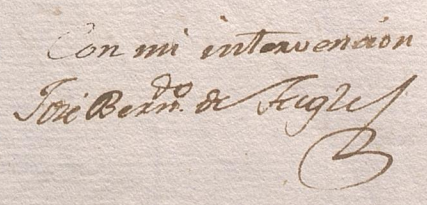 Con mi intervencion
José Berndo. de Tagle